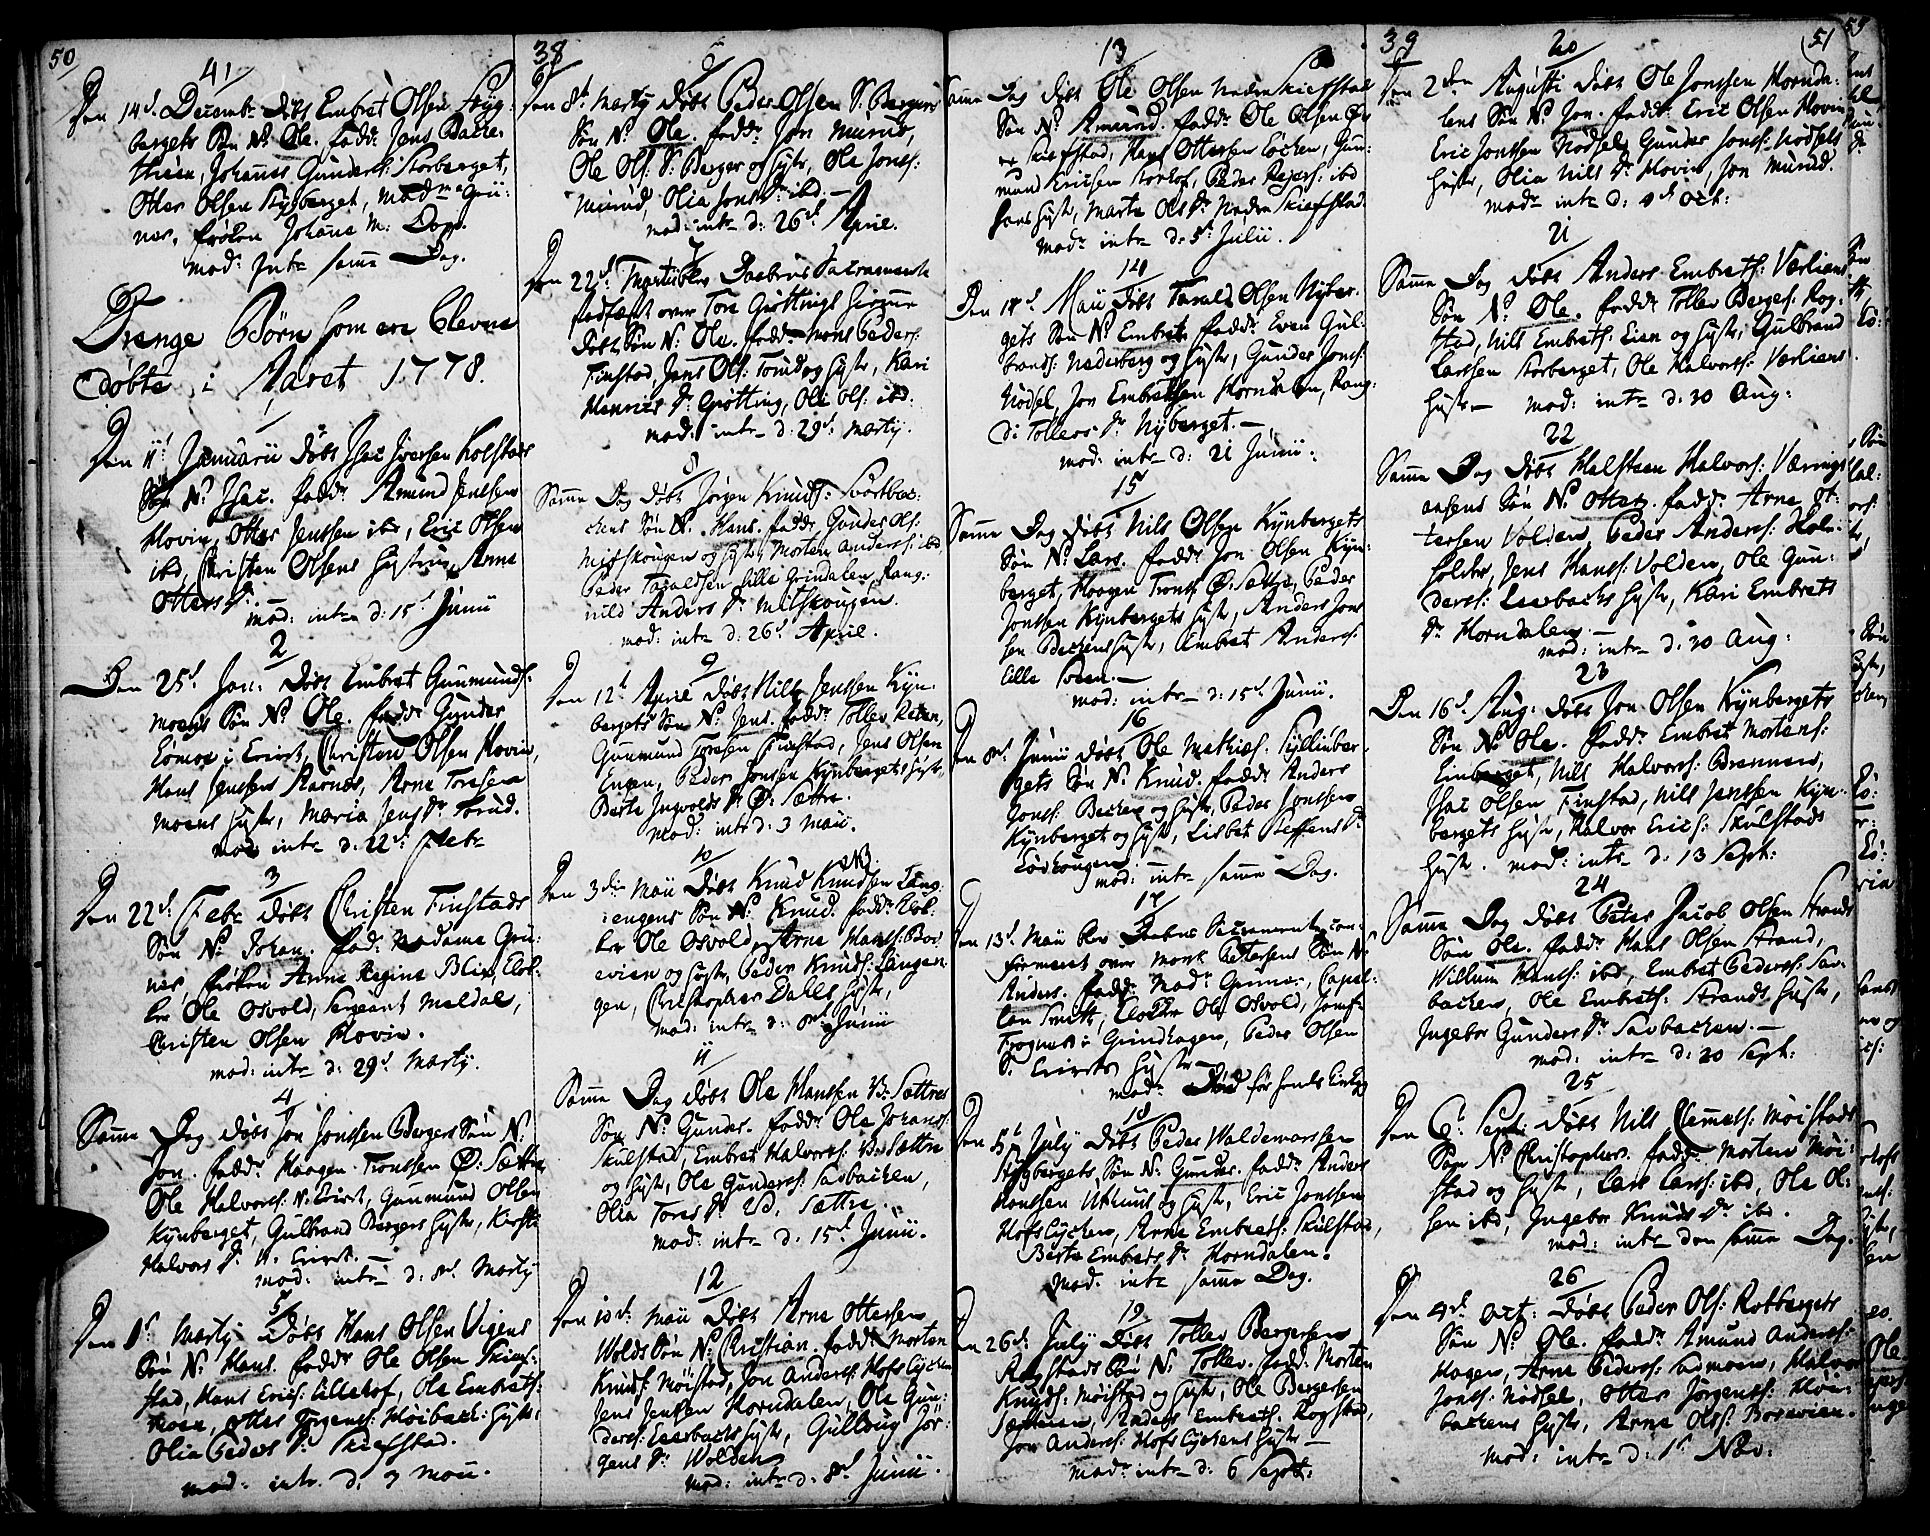 50
41
Den 14d Decembr Döbt Embret Olsen Styg-
bergets Sön N: Ole. fadd: Jens Backe-
Johannes Gunders: Storberget,
Otter Olsen Stygberget, Madme Grü-
ner, fröken Johana M: Dop.
mod: Intr samme Dag.
Drenge Börn som ere blevne
döbte i Aaret 1778.
1
Den 11t Januarii Döbt Isac Iversen Kolstads
Sön N: Isac. fadd: Amund Jensen
Hovin, Otter Jensen ibd, Eric Olsen
ibd, Christen Olsens Hustrue, Arne
Otters Dr.
mod: intr d: 15d Junii
2
Den 25d Jan: Döbt Embret Gunmunds:
moens Sön N: Ole. fadd: Gunder
i Eriret, Christen Olsen Hovin,
Hans Jensen Aarnæs, Arne Toresen
moens Hystr, Maria Jens Dr Torud.
mod: intr d: 22d Febr
3
Den 22d Febr Döbt Christen Finstads
Sön N: Johan. fad: Madame Grü-
ner, fröken Anne Regine Blix, Klok-
ker Ole Osvold, Sergeant Meldal,
Christen Olsen Hovin.
mod: intr d: 29d Marty.
4
Samme Dag döbt Jon Jonsen Bergers Sön N:
Jon. fadd: Haagen Tronsen Ö: Sættre
Ole Halvors: N: Eriret, Gunmund Olsen
Kynberget, Gulbrand Bergers Hystr, Kirsti
Halvors Dr N: Eriret. —
mod: intr d: 8d Marty
5
Den 1t Marty Döbt Hans Olsen Vigens
Sön N: Hans. fadd: Ole Olsen Skief-
stad, Hans Erics: Lillehof, Ole Embrets:
moen, Otter Jörgens: Möibak: Hystr,
Olia Peders Dr Skiefstad.
mod: intr. d. 3 Maii.
38
6
Den 8d Marty Döbt Peder Olsen S: Bergers
Sön N: Ole. fadd: Jon Murud,
Ole Ols: S: Berger og Hystr, Ole Jons:
Murud, Olia Jons Dr: ibd. —
mod: intr d: 26d Aprie.
7
Den 22d Marty blev Daabens Sacramente
stadfæst over Tore Gröttings hiemme
döbte Sön N: Ole. fadd: Mons Peders:
Finstad, Jens Ols: Torud og Hystr, Kari
Henrics Dr Grötting, Ole Ols: ibd:
mod: intr d: 29d Marty.
8
Samme Dag Döbt Jörgen Knuds: Svartbec-
kens Sön N: Hans. fadd: Gunder Ols:
Midskougen og Hystr, Morten Anders: ibd,
Peder Taraldsen lille Grindalen, Rang-
nild Anders Dr Mitskougen.
mod: intr d: 26d April.
9
Den 12t Aprie Döbt Nils Jenssen Kyn-
bergets Sön N: Jens. fadd: Tollev Raten,
Gunmund Toresen Finstad, Jens Olsen
Engen, Peder Jonsen Kynbergets Hystr,
Berte Ingvolds Dr Ö: Sættre.
mod: intr d: 3 Maii.
10
Den 3die Maii Döbt Knud Knudsen Lang-
engens Sön N: Knud. fadd: Klok-
ker Ole Osvold, Arne Hans: Bor-
evien og Hystr, Peder Knuds: Langen-
gen, Christopher Dahls Hystr,
mod: intr d: 8d Junii
11
Samme Dag Döbt Ole Hansen V: Sættres
Sön N: Gunder. fadd: Ole Johans:
Skulstad, Embret Halvors: V: Sættre
og Hystr, Ole Gunders: Savbacken,
Olia Tores Dr V. Sættre.
mod: intr d: 15d Junii.
12
Den 10d Maii Döbt Arne Ottersen
Wolds Sön N: Christian. fadd: Morten
Knuds: Möistad, Jon Anders: Hofs Lycken
Jens Jensen Horndalen, Ole Gun-
ders: Leerbacks Hystr, Gullvig Jör-
gens Dr Wolden
mod: intr d: 8d Junii.
13
Samme Dag döbt Ole Olsen Neden Skiefstads
Sön N: Amund. fadd: Ole Olsen Öv-
re Skiefstad, Hans Ottersen Löcken, Gun-
mund Ericsen Storhof, Peder Reiers: ibd
hans Hystr, Marte Ols Dr Neden Skiefstad.
mod: intr d: 5d Julii.
14
Den 17d Maii Döbt Tarald Olsen Nyber-
gets Sön N: Embret. fadd: Even Gul-
brands: Nederberg og Hystr, Gunder Jons:
Nodsel, Jon Embretsen Horndalen, Rang-
di Tollevs Dr Nyberget. —
mod: intr d: 21 Junii.
15
Samme Dag Döbt Nils Olsen Kynbergets
Sön N: Lars. fadd: Jon Olsen Kyn-
berget, Haagen Trons: Ö: Sættre, Peder
Jonsen Kynbergets Hystr, Anders Jon-
sen Beckens Hystr, Embret Anders:
lille Roen. —
mod: intr d: 15d Junii.
16
Den 8d Junii Döbt Ole Mathies: Syllinber-
gets Sön N: Knud. fadd: Anders
Jons: Becken og Hystr, Peder Jonsen
Kynberget og Hystr, Lisbet Steffens Dr
mod: intr samme Dag.
17
Den 13d Maii blev Daabens Sacramente con-
firmeret over Mork Pettersens Sön N:
Anders. fadd: Mad: Gruner, Capel-
len Smitt, Klokker Ole Osvold, Jomf:
Frogner i Grindhagen, Peder Olsen
S. Erirets Hystr —
mod: Död för hends Kirkeg
18
Den 5t July Döbt Peder Waldemarssen
Stygbergets Sön N: Gunder. fadd: Anders
Hanssen Uthuus og Hystr, Eric Jonsen
Hofs Lycken, Arne Embrets: Skulstad,
Berte Embrets Dr Horndalen.
mod: intr samme Dag.
19
Den 26d July Döbt Tollev Bergersen
Rogstads Sön N: Tollev. fadd: Morten
Knuds: Möistad og Hystr, Ole Bergersen
Anders Embrets: Rogstad,
Jon Anders: Hofs Lyckens Hystr —
mod: intr d: 6 Sept:
39
51
20
Den 2den Augusti Döbt Ole Jonssen Hornda-
lens Sön N: Jon. fadd: Eric Olsen Hovin
Eric Jonssen Nodsel, Gunder Jons: Nodsels
Hystr, Olia Nils Dr Hovin, Jon Murud.
mod: intr d: 4d Oct:
21
Samme Dag döbt Anders Embrets: Værliens
Sön N: Ole. fadd: Tollev Bergers: Rog-
stad, Nils Embrets: Eien og Hystr, Gulbrand
Larssen Storberget, Ole Halvors: Værliens
Hystr — mod: intr d: 30 Aug:
22
Samme Dag Döbt Halsteen Halvors: Værings-
aasens Sön N: Otter. fadd: Arne Ot-
tersen Volden, Peder Anders: Hol-
Jens Hans: Volden, Ole Gun-
ders: Leerbacks Hystr, Kari Embrets
Dr Horndalen. —
mod: intr d: 30 Aug:
23
Den 16d Aug: Döbt Jon Olsen Kynbergets
Sön N: Ole. fadd: Embret Mortens:
Nils Halvors: Brennen,
Isac Olsen Finstad, Nils Jenssen Kyn-
bergets Hystr, Halvor Erics: Skulstads
Hystr. mod: intr d: 13 Sept:
24
Samme Dag Döbt Peter Jacob Olsen Strands
Sön Ole. fadd: Hans Olsen Strand,
Villum Hans: ibd, Embret Peders: Sav-
backen, Ole Embrets: Strands Hystr,
Ingebor Gunders Dr Savbacken. —
mod: intr d: 20 Sept:
25
Den 6t Sept: Döbt Nils Clemmets: Möistads
Sön N: Christopher. fadd: Morten Möi-
stad og Hystr, Lars Lars: ibd, Ole Ol-
sen ibd, Ingebor Knuds Dr ibd.
mod: intr den samme Dag.
26
Den 4d Oct: Döbt Peder Ols: Rotbergets
Sön N: Ole. fadd: Amund Anders:
Hagen, Arne Peders: Sadmoen, Halvor
Jons: Nodsel, Otter Jörgens: Möi-
backens Hystr, Arne Ols: Borevien.
mod: intr d: 1t Nov: